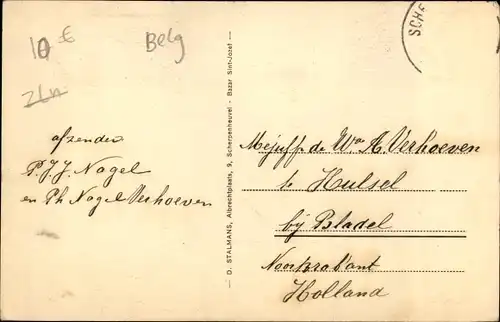 10 €
Belg
afzender
P.J.J. Nagel
en Ph Nagel Verhoeven
— D. STALMANS, Albrechtplaats, 9, Scherpenheuvel - Bazar Sint-Jozef —
SCHE
Mejuff. de Wa A. Verhoeven
te Hulsel
bij Bladel
Noorbrabant
Holland